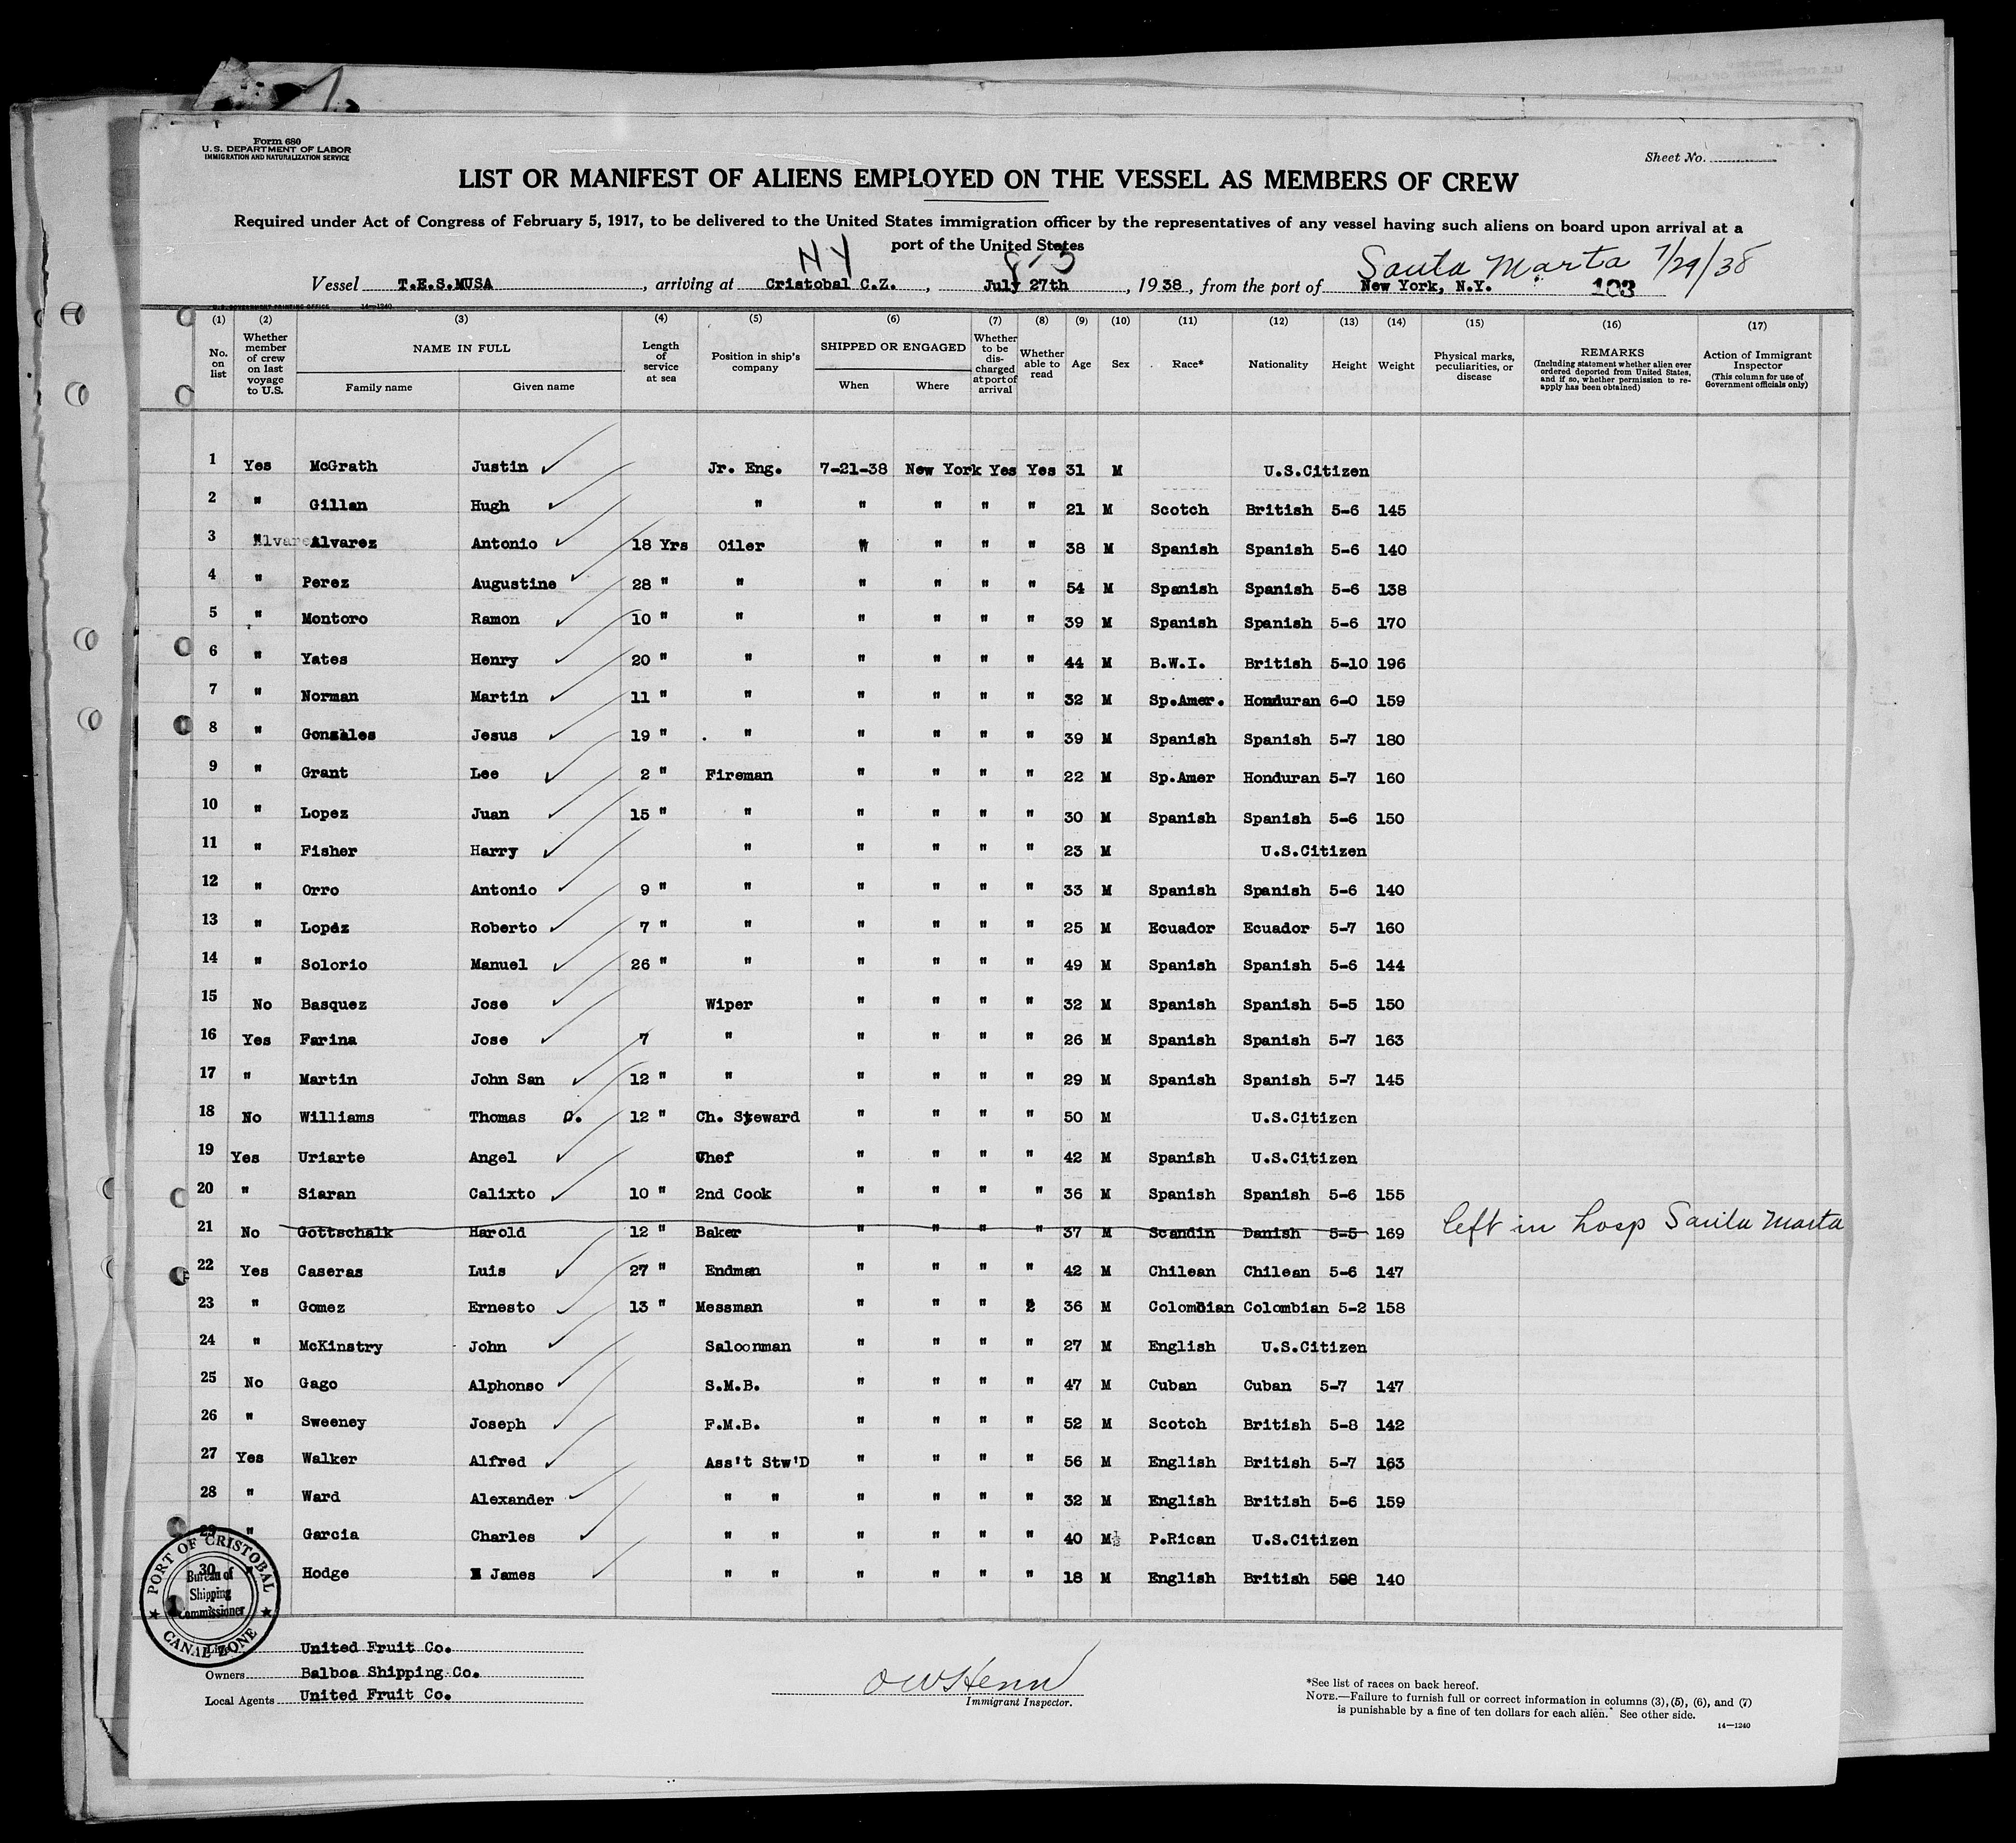 Form 680
U. S. DEPARTMENT OF LABOR
IMMIGRATION AND NATURALIZATION SERVICE
Sheet No.
LIST OR MANIFEST OF ALIENS EMPLOYED ON THE VESSEL AS MEMBERS OF CREW
Required under Act of Congress of February 5, 1917, to be delivered to the United States immigration officer by the representatives of any vessel having such aliens on board upon arrival at a
port of the United States
NY Santa Marta 7/29/38
Vessel T.E.S.MUSA, arriving at Cristobal C.Z., July 27th, 1938, from the port of New York, N.Y. 103
U.S. GOVERNMENT PRINTING OFFICE 14—1240
(1) (2) (3) (4) (5) (6) (7) (8) (9) (10) (11) (12) (13) (14) (15) (16) (17)
No. on list
Whether member of crew on last voyage to U.S.
NAME IN FULL
Family name Given name
Length of service at sea
Position in ship's company
SHIPPED OR ENGAGED
When Where
Whether to be discharged at port of arrival
Whether able to read
Age Sex Race* Nationality Height Weight
Physical marks, peculiarities, or disease
REMARKS
(Including statement whether alien ever ordered deported from United States, and if so, whether permission to re-apply has been obtained)
Action of Immigrant Inspector
(This column for use of Government officials only)
1 Yes McGrath Justin Jr. Eng. 7-21-38 New York Yes Yes 31 M U.S.Citizen
2 " Gillan Hugh " " " " " 21 M Scotch British 5-6 145
3 " Alvarez Antonio 18 Yrs Oiler " " " " 38 M Spanish Spanish 5-6 140
4 " Perez Augustine 28 " " " " " " 54 M Spanish Spanish 5-6 138
5 " Montoro Ramon 10 " " " " " " 39 M Spanish Spanish 5-6 170
6 " Yates Henry 20 " " " " " " 44 M B.W.I. British 5-10 196
7 " Norman Martin 11 " " " " " " 32 M Sp.Amer. Honduran 6-0 159
8 " Gonzales Jesus 19 " " " " " " 39 M Spanish Spanish 5-7 180
9 " Grant Lee 2 " Fireman " " " " 22 M Sp.Amer Honduran 5-7 160
10 " Lopez Juan 15 " " " " " " 30 M Spanish Spanish 5-6 150
11 " Fisher Harry " " " " " 23 M U.S.Citizen
12 " Orro Antonio 9 " " " " " " 33 M Spanish Spanish 5-6 140
13 " Lopez Roberto 7 " " " " " " 25 M Ecuador Ecuador 5-7 160
14 " Solorio Manuel 26 " " " " " " 49 M Spanish Spanish 5-6 144
15 No Basquez Jose Wiper " " " " 32 M Spanish Spanish 5-5 150
16 Yes Farina Jose 7 " " " " " 26 M Spanish Spanish 5-7 163
17 " Martin John San 12 " " " " " " 29 M Spanish Spanish 5-7 145
18 No Williams Thomas G. 12 " Ch. Steward " " " " 50 M U.S.Citizen
19 Yes Uriarte Angel Chef " " " " 42 M Spanish U.S.Citizen
20 " Siaran Calixto 10 " 2nd Cook " " " " 36 M Spanish Spanish 5-6 155
21 No Gottschalk Harold 12 " Baker " " " " 37 M Scandin Danish 5-5 169 left in hosp Santa Marta
22 Yes Caseras Luis 27 " Endman " " " " 42 M Chilean Chilean 5-6 147
23 " Gomez Ernesto 13 " Messman " " " " 36 M Colombian Colombian 5-2 158
24 " McKinstry John Saloonman " " " " 27 M English U.S.Citizen
25 No Gago Alphonso S.M.B. " " " " 47 M Cuban Cuban 5-7 147
26 " Sweeney Joseph F.M.B. " " " " 52 M Scotch British 5-8 142
27 Yes Walker Alfred Ass't Stw'D " " " " 56 M English British 5-7 163
28 " Ward Alexander " " " " " " 32 M English British 5-6 159
29 " Garcia Charles " " " " " " 40 M P.Rican U.S.Citizen
30 Hodge James " " " " " " 18 M English British 5-8 140
PORT OF CRISTOBAL
Bureau of
Shipping
Commissioner
CANAL ZONE
United Fruit Co.
Owners Balboa Shipping Co.
Local Agents United Fruit Co.
O W Henn
Immigrant Inspector.
*See list of races on back hereof.
NOTE.—Failure to furnish full or correct information in columns (3), (5), (6), and (7)
is punishable by a fine of ten dollars for each alien. See other side.
14—1240